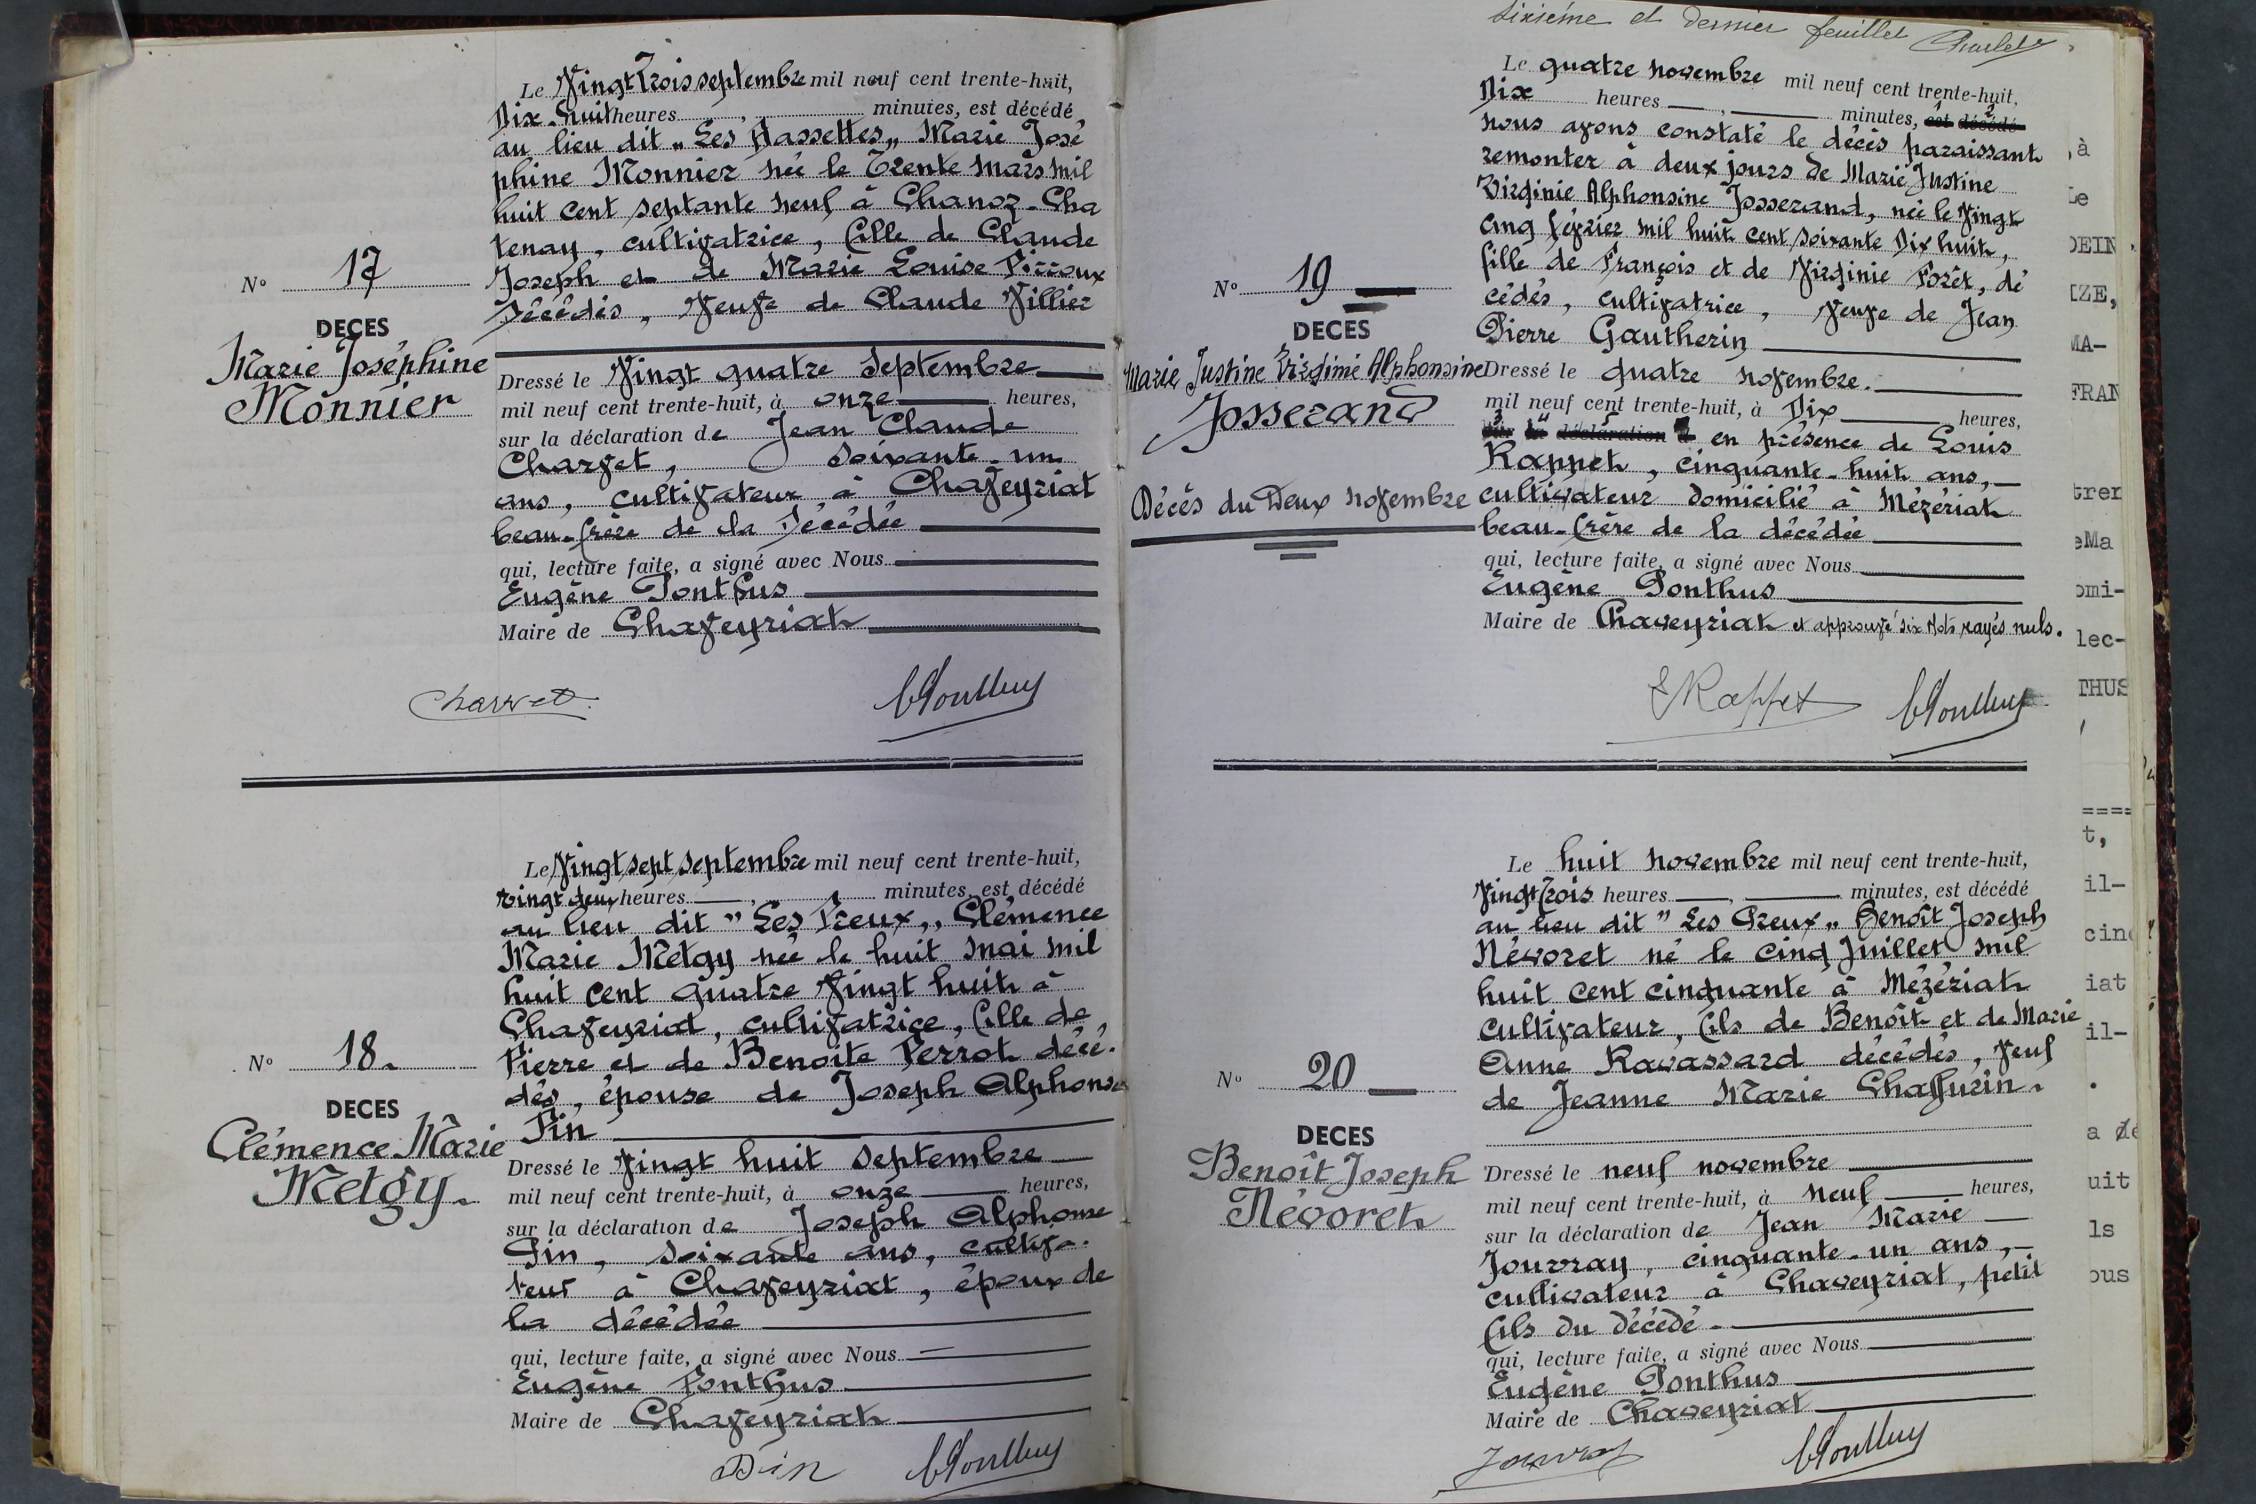 N° 17
DECES
Marie Joséphine
Monnier
Le Vingt Trois septembre mil neuf cent trente-huit,
Dix-huit heures minutes, est décédé
au lieu dit "Les Hassettes" Marie José
phine Monnier née le Trente mars mil
huit cent septante neuf à Chanoz-Cha
tenay, cultivatrice, fille de Claude
Joseph et de Marie Louise
Décédés, Veuve de Claude Villier
Dressé le Vingt quatre Septembre
mil neuf cent trente-huit, à onze heures,
sur la déclaration de Jean Claude
Charvet, soixante-un
ans, cultivateur à Chaveyriat
beau-frère de la Décédée
qui, lecture faite, a signé avec Nous
Eugène Ponthus
Maire de Chaveyriat
Charvet
N° 18.
DECES
Clémence Marie
Metgy.
Le Vingt sept septembre mil neuf cent trente-huit,
vingt deux heures minutes, est décédé
au lieu dit "Les Preux", Clémence
Marie Metgy née le huit mai mil
huit cent quatre Vingt huit à
Chaveyriat, cultivatrice, fille de
Pierre et de Benoîte Perrot décé-
dés, épouse de Joseph Alphonse
Pin
Dressé le Vingt huit Septembre
mil neuf cent trente-huit, à onze heures,
sur la déclaration de Joseph Alphonse
Pin, soixante ans, cultiva-
teur à Chaveyriat, époux de
la décédée
qui, lecture faite, a signé avec Nous
Eugène Ponthus
Maire de Chaveyriat
Pin
Sixième et dernier feuillet
N° 19
DECES
Marie Justine Virginie Alphonsine
Josserand
Décès du Deux Novembre
Le quatre novembre mil neuf cent trente-huit,
Dix heures minutes, est décédé
nous avons constaté le décès paraissant
remonter à deux jours de Marie Justine
Virginie Alphonsine Josserand, née le Vingt
cinq février mil huit cent soixante Dix huit,
fille de François et de Virginie Forêt, dé
cédés, cultivatrice, Veuve de Jean
Pierre Gautherin
Dressé le quatre novembre.
mil neuf cent trente-huit, à Dix heures,
sur la déclaration d en présence de Louis
Rappet, cinquante-huit ans,
cultivateur domicilié à Mézériat
beau-frère de la décédée
qui, lecture faite, a signé avec Nous
Eugène Ponthus
Maire de Chaveyriat et approuvé six mots rayés nuls.
Rappet
N° 20
DECES
Benoît Joseph
Névoret
Le huit novembre mil neuf cent trente-huit,
Vingt Trois heures minutes, est décédé
au lieu dit "Les Preux" Benoît Joseph
Névoret né le cinq Juillet mil
huit cent cinquante à Mézériat
cultivateur, fils de Benoît et de Marie
Anne Ravassard décédés, Veuf
de Jeanne Marie Chaffurin.
Dressé le neuf novembre
mil neuf cent trente-huit, à neuf heures,
sur la déclaration de Jean Marie
Jouvray, cinquante-un ans,
cultivateur à Chaveyriat, petit
fils du décédé
qui, lecture faite, a signé avec Nous
Eugène Ponthus
Maire de Chaveyriat
Jouvray
, à
DEIN
IZE,
MA-
FRAN
trer
eMa
omi-
lec-
THUS
====
t,
il-
cinq
iat
il-
.
a dé
uit
ls
ous